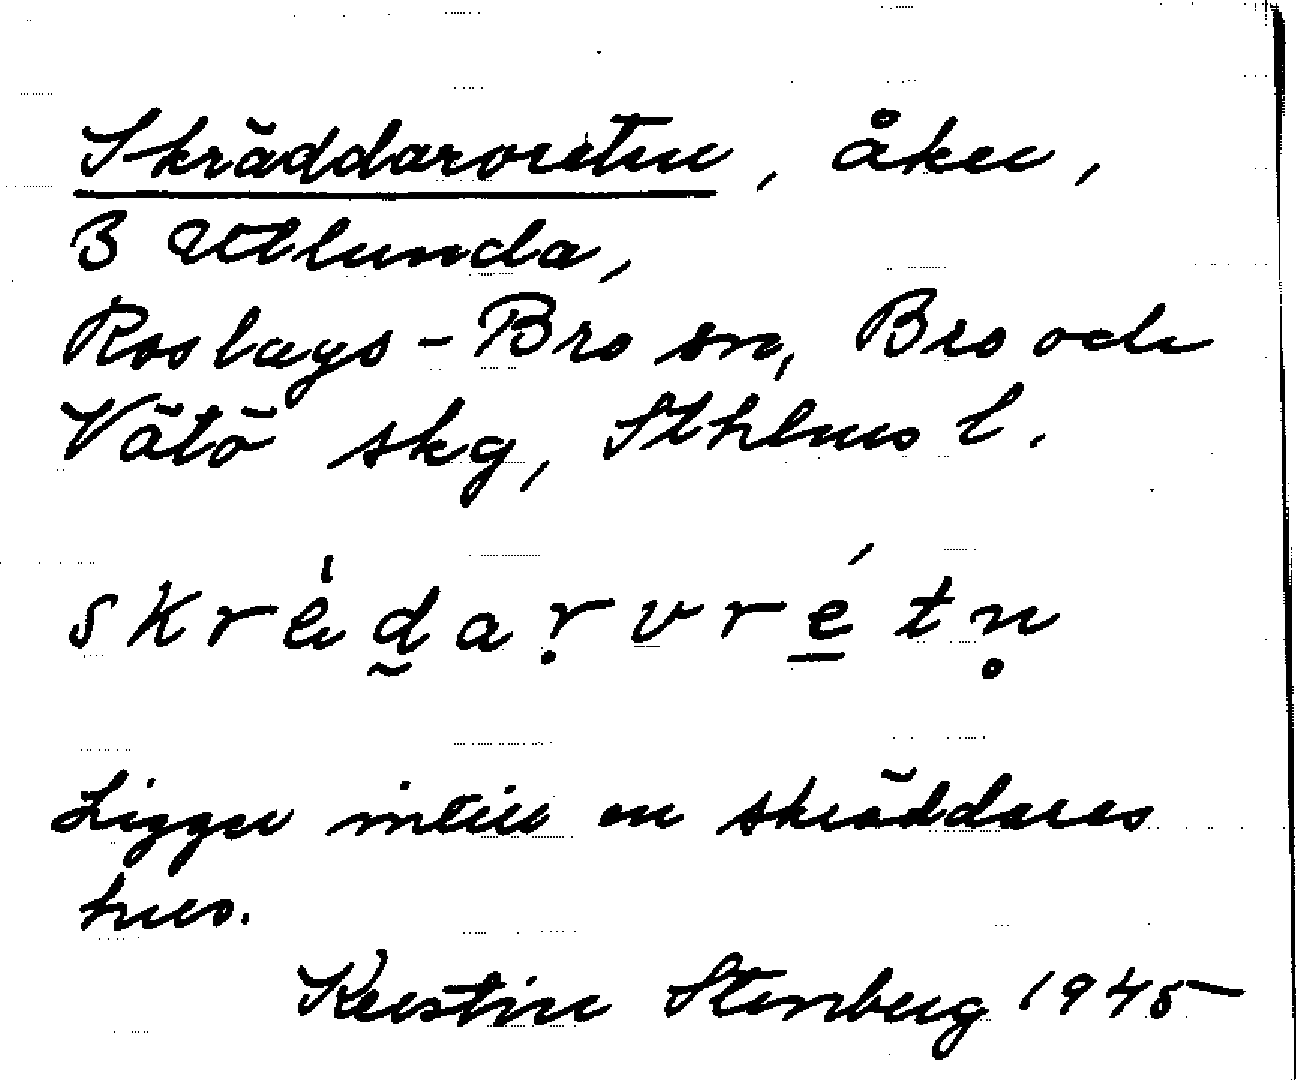 Skräddarvreten, åker,
3 Utlunda,
Roslags-Bro sn, Bro och
Vätö skg, Sthlms l.
skrè̀dạṛvrétn̥
Ligger intill en skräddares
hus.
Kerstin Stenberg 1945